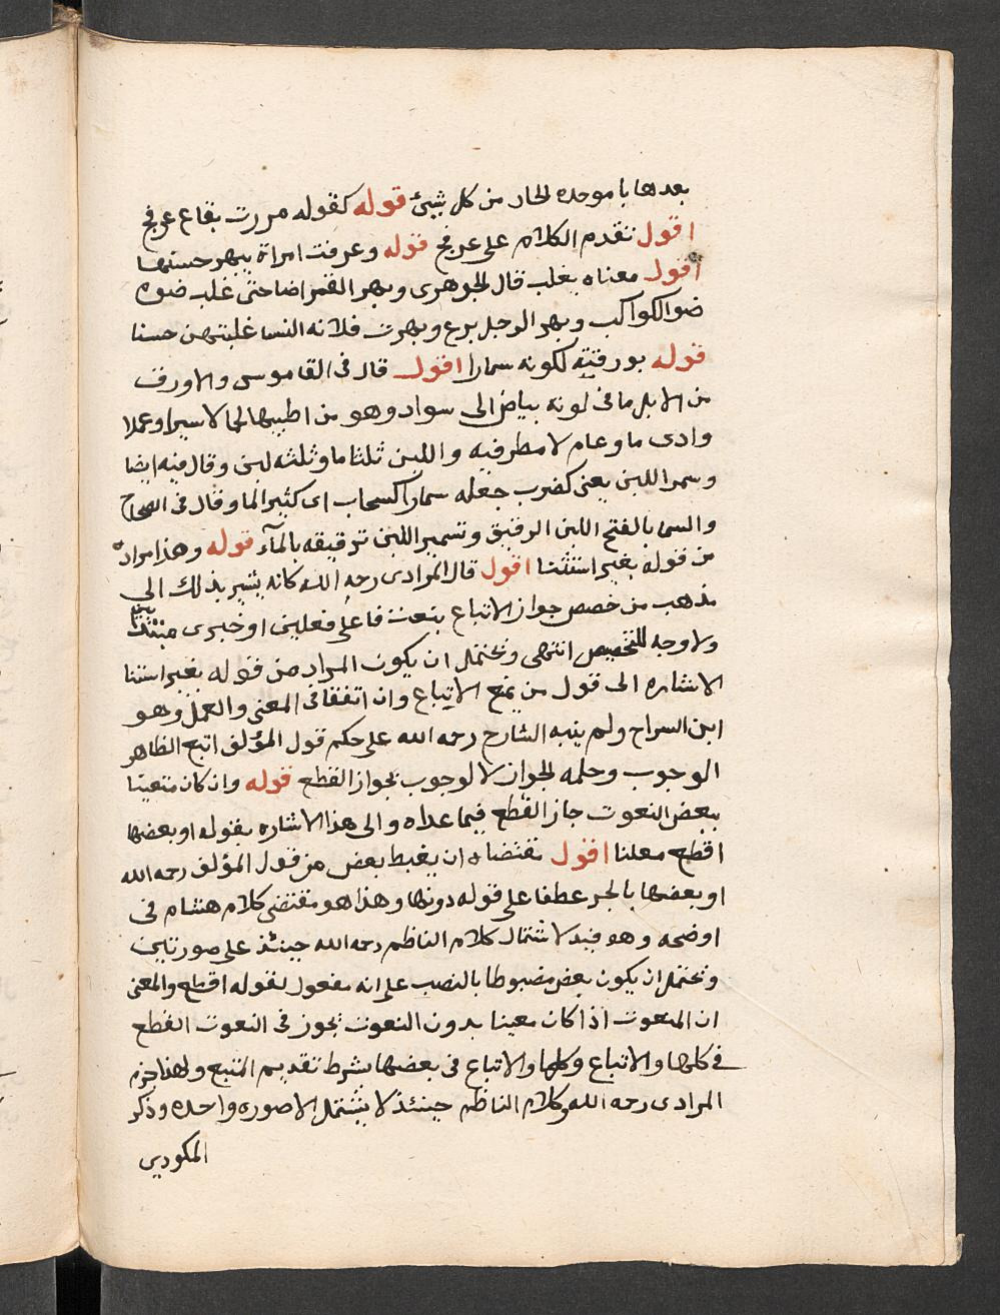 بعدها با موحده الحار من كل شيئ قوله كقوله مررت بقاع عرفج
اقول تقدم الكلام على عرفج قوله وعرفت امراة يبهر حسنها
اقول معناه يغلب قال الجوهرى وبهر القمر اضا حتى غلب ضوه
ضو الكواكب وبهر الرجل برع وبهرت فلانه النسا غلبتهن حسنا
قوله بورقيته لكونه سمارا اقول قال فى القاموس والاورق
من الابل ما فى لونه بياض الى سواد وهو من اطيبها لحما لا سيرا وعملا
وادى ما وعام لا مطر فيه واللبن ثلثا ما وثلثه لبن وقال فيه ايضا
وسمر اللبن يعنى كضرب جعله سمارا كسحاب اى كثير الما وقال فى الصحاح
والسمار بالفتح اللبن الرقيق وتسمير اللبن ترقيقه بالمآء قوله وهذا مراده
من قوله بغير استثنا اقول قال المرادى رحمه الله كانه يشير بذلك الى
مذهب من خصص جواز الاتباع بنعت فاعلى فعلين او خبرى مبتدأين
ولا وجه للتخصيص انتهى ويحتمل ان يكون المراد من قوله بغير استثنا
الاشاره الى قول من يمنع الاتباع وان اتفقا فى المعنى والعمل وهو
ابن السراج ولم ينبه الشارح رحمه الله على حكم قول المؤلف اتبع الظاهر
الوجوب وحمله الجواز لا لوجوب بجواز القطع قوله وان كان متعينا
ببعض النعوت جاز القطع فيما عداه والى هذا الاشاره بقوله او بعضها
اقطع معلنا اقول مقتضاه ان يضبط بعض من قول المؤلف رحمه الله
او بعضها بالجر عطفا على قوله دونها وهذا هو مقتضى كلام هشام فى
اوضحه وهو فيد لاشتمال كلام الناظم رحمه الله حينئذ على صورتين
ويحتمل ان يكون بعض مضبوطا بالنصب على انه مفعول لقوله اقطع والمعنى
ان المنعوت اذا كان معينا بدون النعوت يجوز فى النعوت القطع
فى كلها والاتباع وكلها والاتباع فى بعضها بشرط تقديم المتبع ولهذا جزم
المرادى رحمه الله وكلام الناظم حينئذ لا يشتمل الا صوره واحده وذكر
المكودى